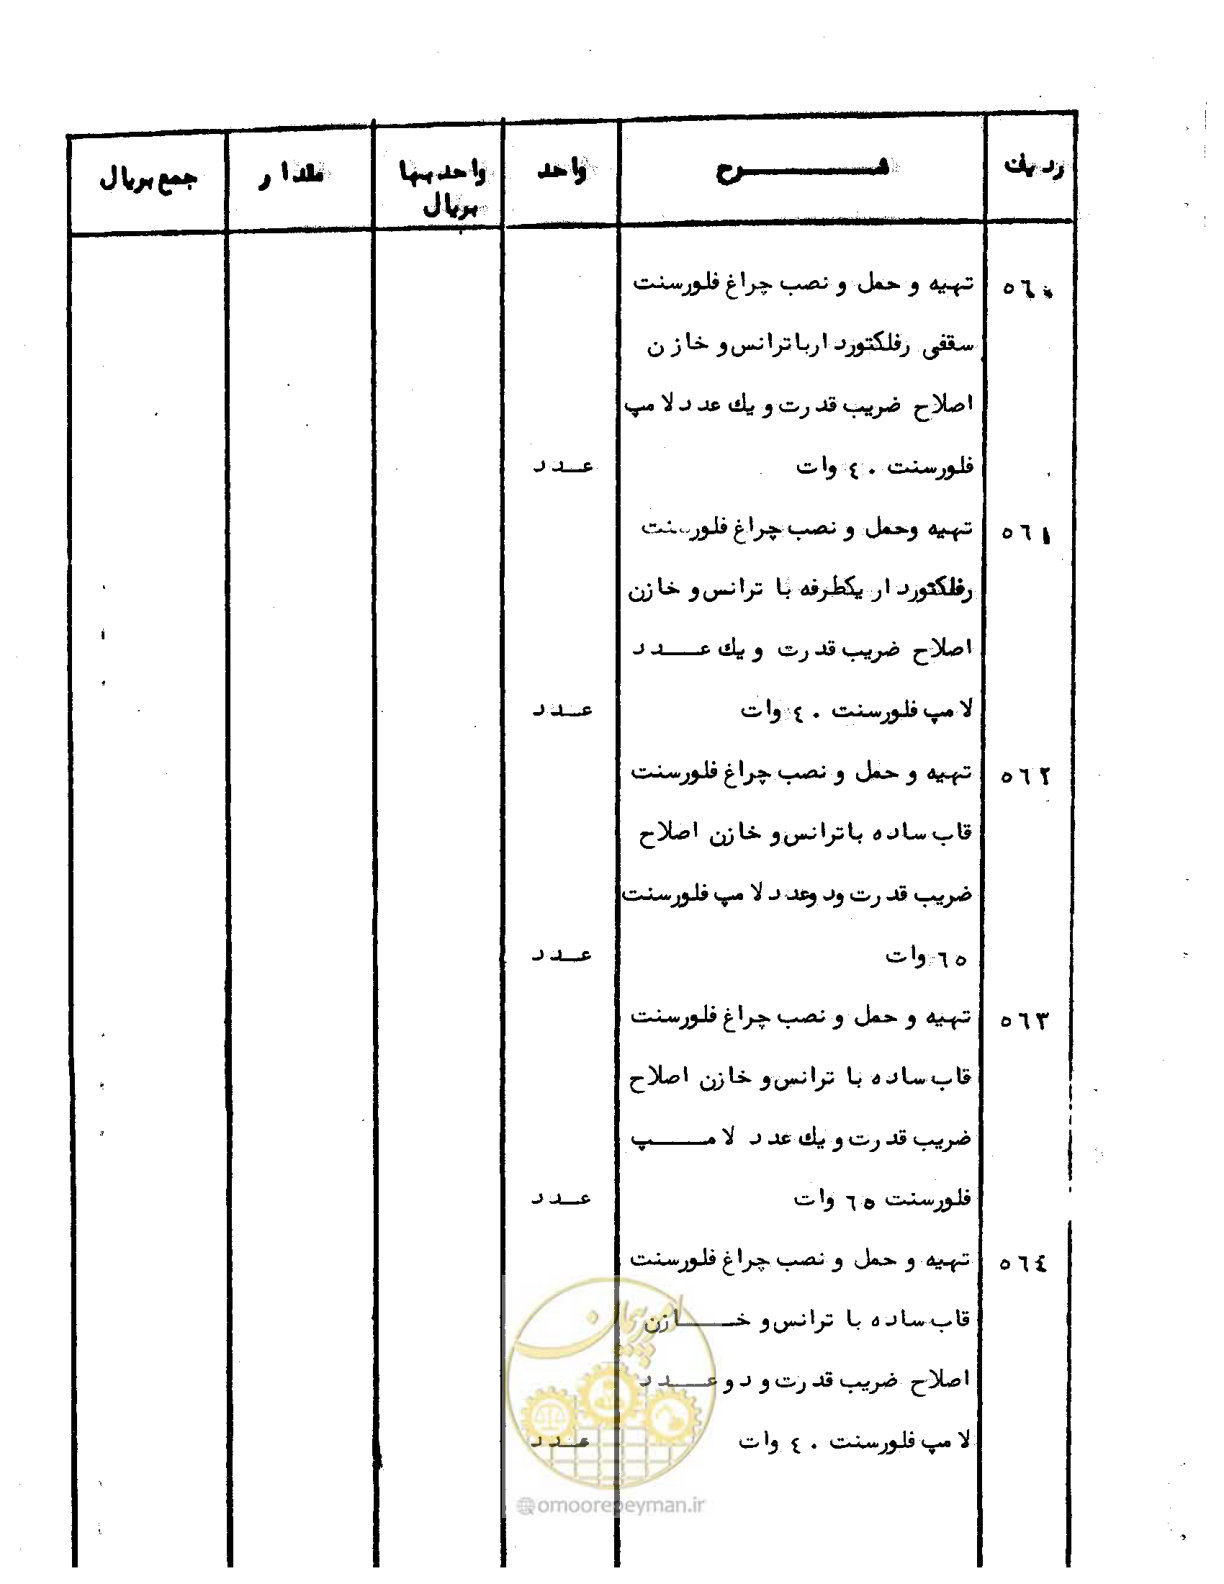 ردیف شرح واحد واحد بها مقدار جمع بریال
بریال
۵۶۰ تهیه و حمل و نصب چراغ فلورسنت
سقفی رفلکتوردار با ترانس و خازن
اصلاح ضریب قدرت و یك عدد لامپ
فلورسنت ۴۰ وات عدد
۵۶۱ تهیه وحمل و نصب چراغ فلورسنت
رفلکتوردار یکطرفه با ترانس و خازن
اصلاح ضریب قدرت و یك عدد
لامپ فلورسنت ۴۰ وات عدد
۵۶۲ تهیه و حمل و نصب چراغ فلورسنت
قاب ساده با ترانس و خازن اصلاح
ضریب قدرت ودوعدد لامپ فلورسنت
۶۵ وات عدد
۵۶۳ تهیه و حمل و نصب چراغ فلورسنت
قاب ساده با ترانس و خازن اصلاح
ضریب قدرت و یك عدد لامپ
فلورسنت ۶۵ وات عدد
۵۶۴ تهیه و حمل و نصب چراغ فلورسنت
قاب ساده با ترانس و خازن
اصلاح ضریب قدرت و دو عدد
لامپ فلورسنت ۴۰ وات عدد
امور پیمان
@omoorepeyman.ir